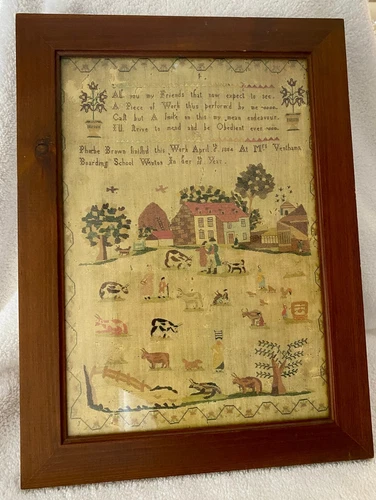 All you my Friends that now expect to see
A Piece of Work thus perform'd by me
Cast but A smile on this my mean endeavour
I'll strive to mend and be Obedient ever
Phœbe Brown finished this Work April 1800 At Mrs
Boarding School in her 11 Year